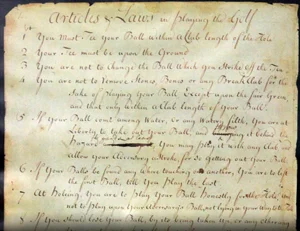 Articles & Laws in Playing the Golf
1 You Must Tee your Ball within a Club length of the Hole
2 Your Tee must be upon the Ground
3 You are not to change the Ball which you Stroke off the Tee
4 You are not to Remove Stones, Bones or any Break Club for the
Sake of playing your Ball Except upon the fair Green
and that only within a Club length of your Ball
5 If your Ball come among Water, or any watery filth, You are at
Liberty to take out your Ball, and it behind the
Hazard You may play it with any Club and
allow your Adversary a Stroke, for so getting out your Ball
6 If your Balls be found any where touching one another, You are to lift
the first Ball, till You play the last
7 At Holeing, You are to play Your Ball Honestly for the Hole, and
not to play upon Your Adversary's Ball, not lying in your way to the
8 If you should lose Your Ball, by its being taken up, or any other way